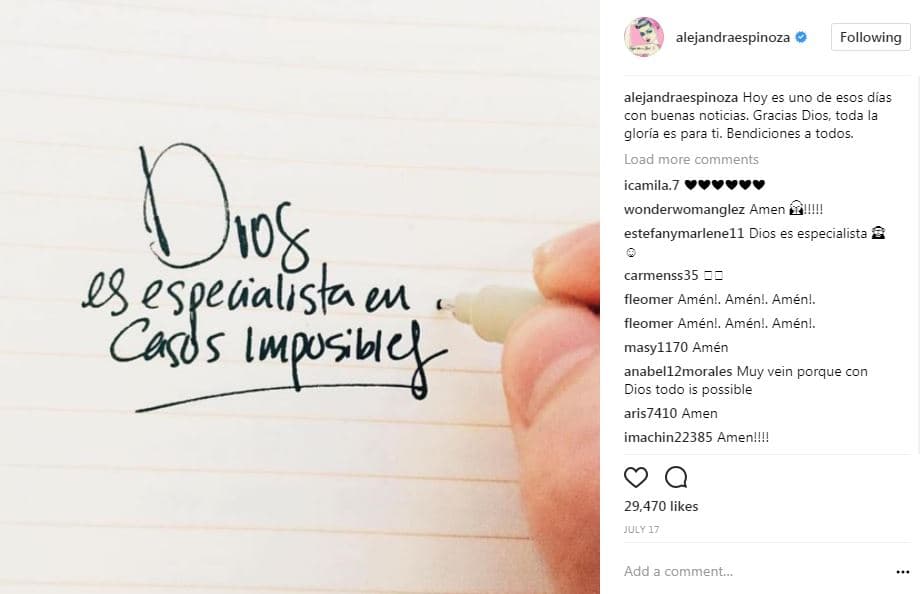 Dios
es especialista en
Casos Imposibles
alejandraespinoza
Following
alejandraespinoza Hoy es uno de esos días
con buenas noticias. Gracias Dios, toda la
gloría es para ti. Bendiciones a todos.
Load more comments
icamila.7 ♥♥♥♥♥♥
wonderwomanglez Amen 🙌!!!!!
estefanymarlene11 Dios es especialista
☺
carmenss35
fleomer Amén!. Amén!. Amén!.
fleomer Amén!. Amén!. Amén!.
masy1170 Amén
anabel12morales Muy vein porque con
Dios todo is possible
aris7410 Amen
imachin22385 Amen!!!!
29,470 likes
JULY 17
Add a comment...